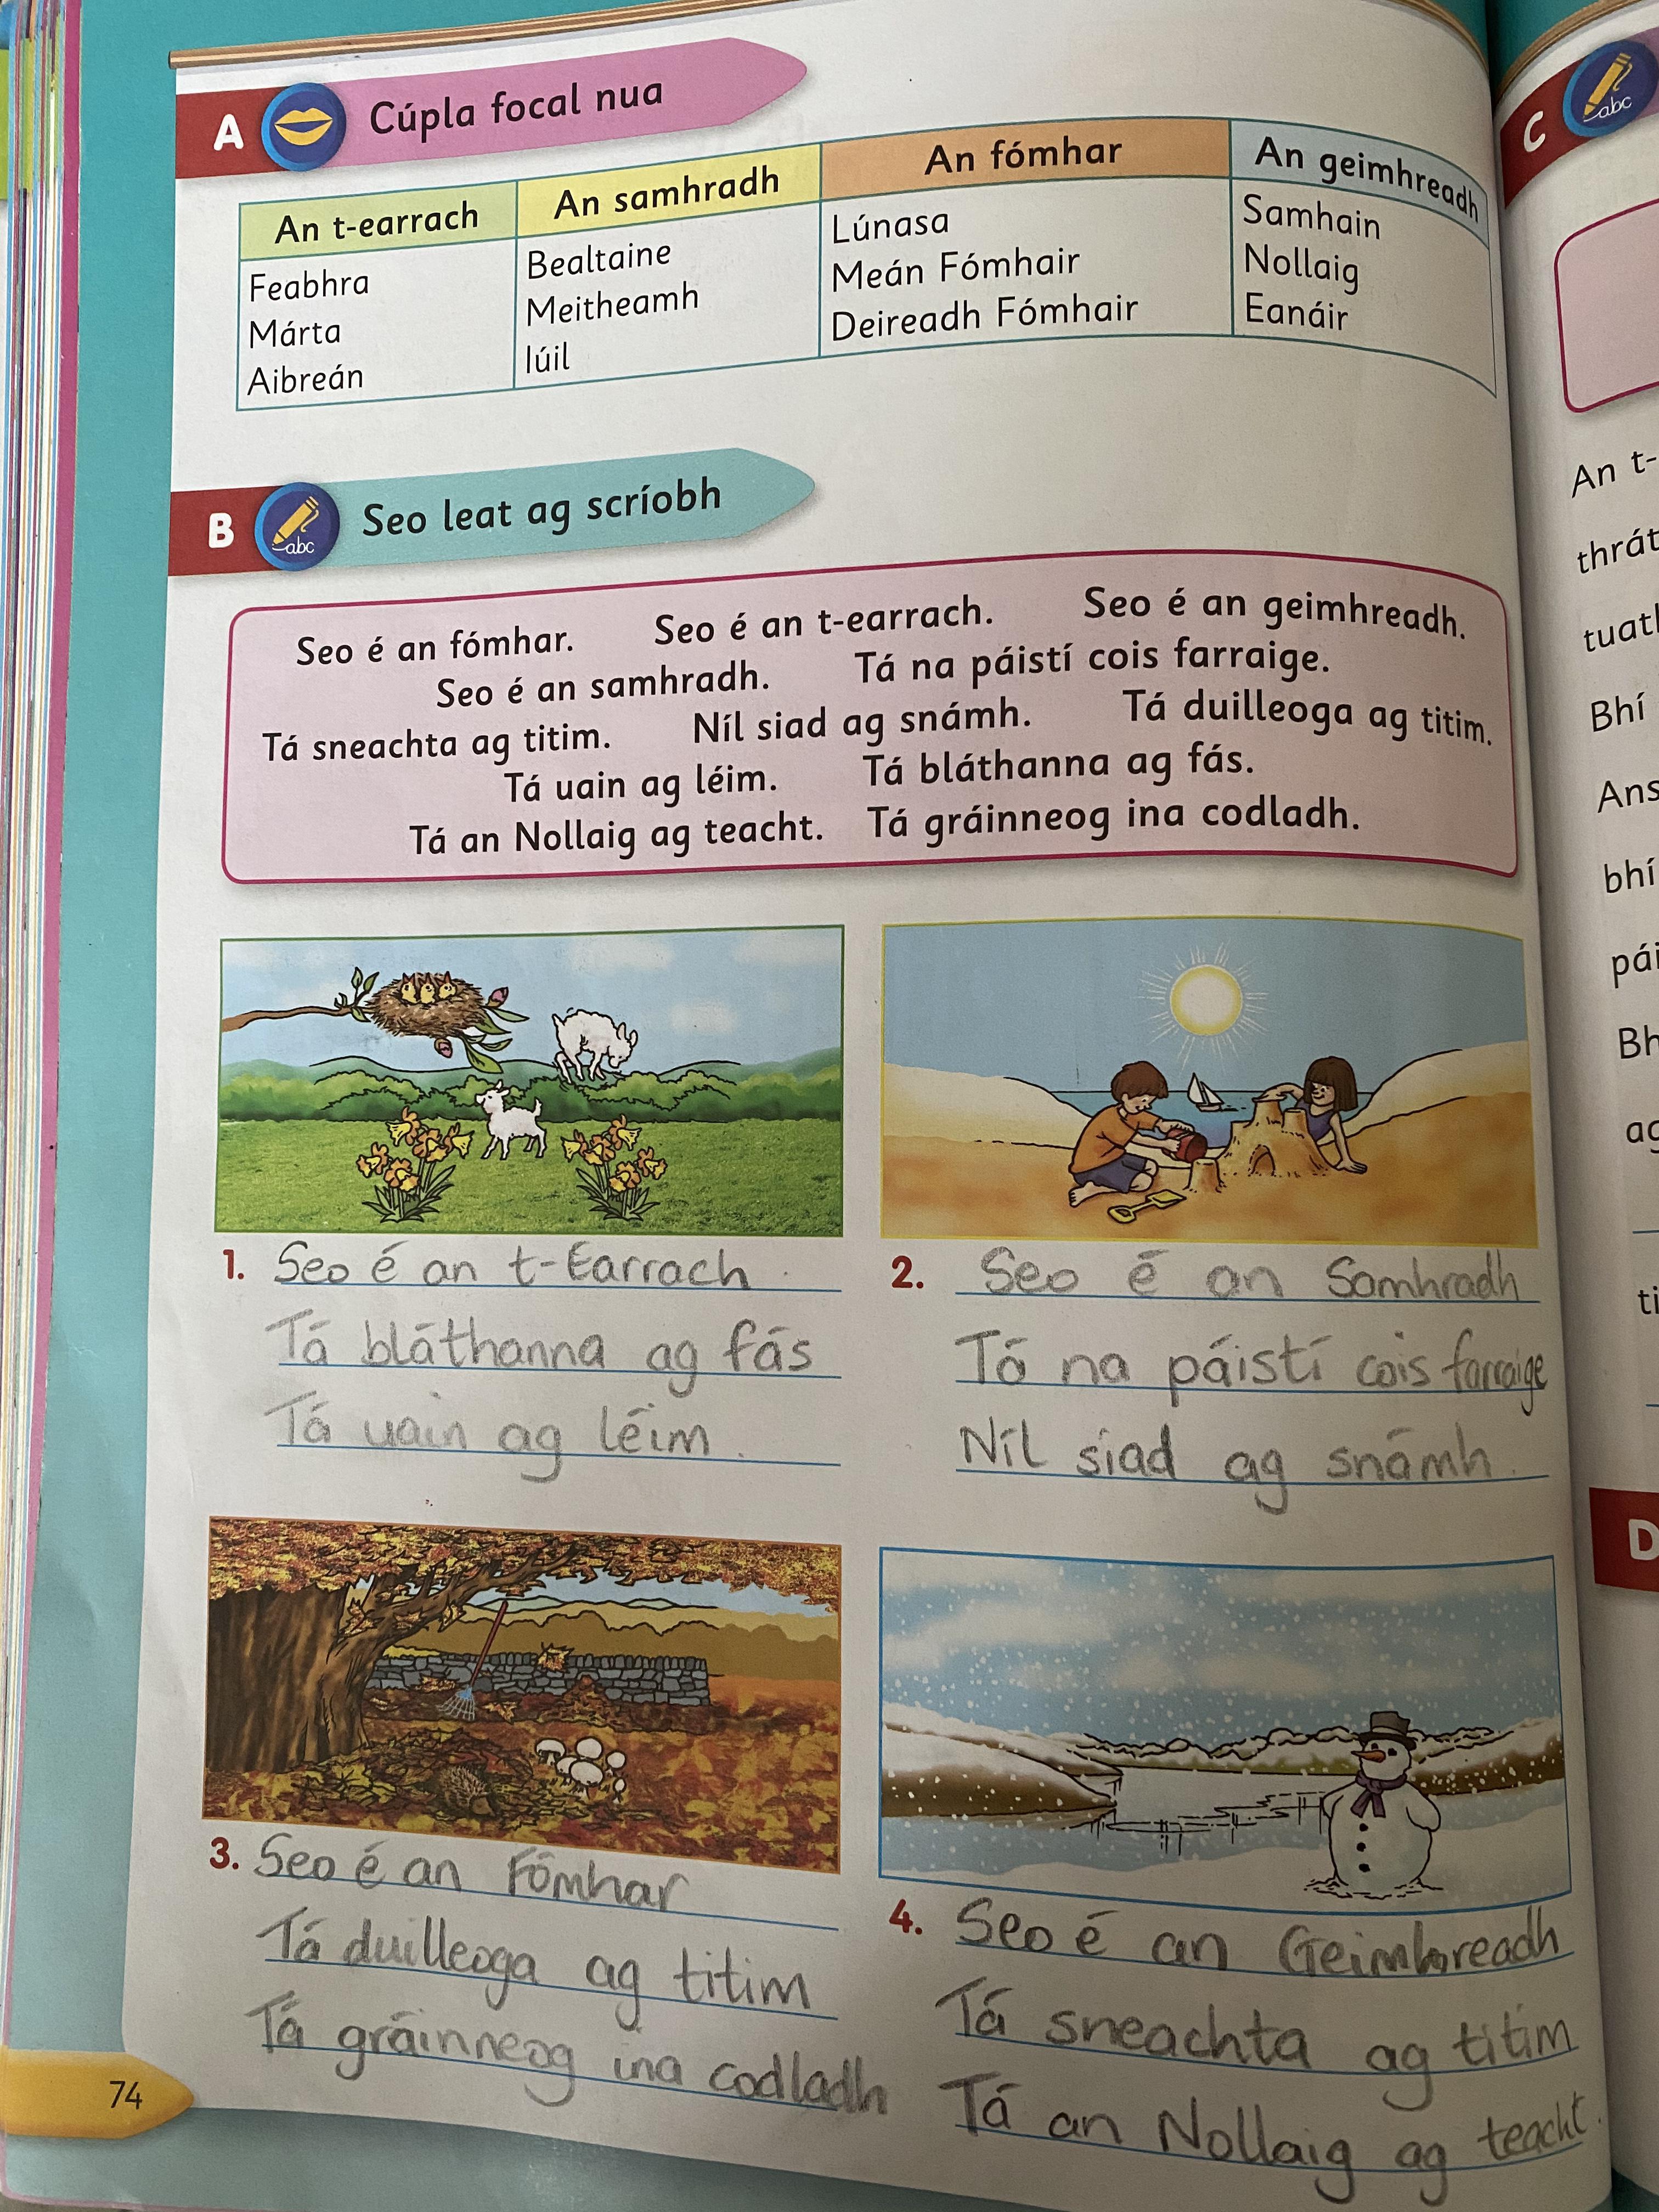 A Cúpla focal nua
An t-earrach An samhradh An fómhar An geimhreadh
Feabhra Bealtaine Lúnasa Samhain
Márta Meitheamh Meán Fómhair Nollaig
Aibreán Iúil Deireadh Fómhair Eanáir
B abc Seo leat ag scríobh
Seo é an fómhar. Seo é an t-earrach. Seo é an geimhreadh.
Seo é an samhradh. Tá na páistí cois farraige.
Tá sneachta ag titim. Níl siad ag snámh. Tá duilleoga ag titim.
Tá uain ag léim. Tá bláthanna ag fás.
Tá an Nollaig ag teacht. Tá gráinneog ina codladh.
1. Seo é an t-Earrach.
Tá bláthanna ag fás
Tá uain ag léim.
2. Seo é an Samhradh
Tá na páistí cois farraige
Níl siad ag snámh.
3. Seo é an Fómhar
Tá duilleoga ag titim
Tá gráinneog ina codladh
4. Seo é an Geimhreadh
Tá sneachta ag titim
Tá an Nollaig ag teacht.
74
C abc
An t-
Bhí
D